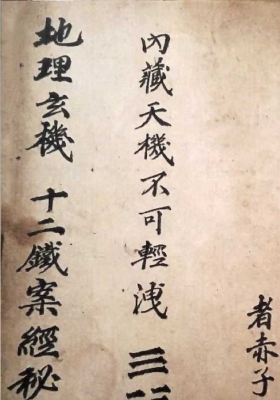 者赤子
內藏天機不可輕洩 三
地理玄機 十二鐵案經秘